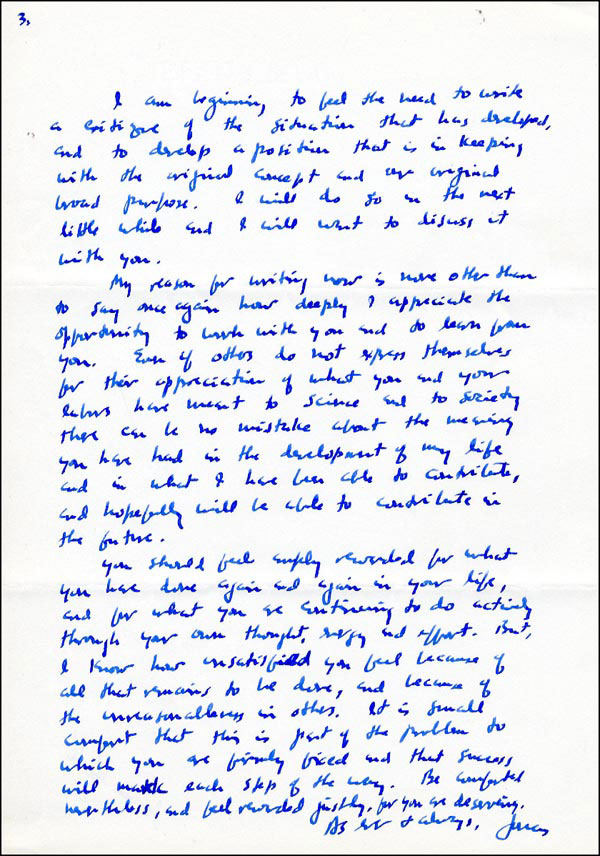 3.
I am beginning to feel the need to write
a critique of the situation that has developed,
and to develop a position that is in keeping
with the original concept and our original
broad purpose. I will do so in the next
little while and I will want to discuss it
with you.
My reason for writing now is none other than
to say once again how deeply I appreciate the
opportunity to work with you and to learn from
you. Even if others do not express themselves
for their appreciation of what you and your
labors have meant to science and to society
there can be no mistake about the meaning
you have had in the development of my life
and in what I have been able to contribute,
and hopefully will be able to contribute in
the future.
You should feel amply rewarded for what
you have done again and again in your life,
and for what you are continuing to do actively
through your own thought, energy and effort. But,
I know how unsatisfied you feel because of
all that remains to be done, and because of
the unreasonableness in others. It is small
comfort that this is part of the problem to
which you are firmly fixed and that success
will mark each step of the way. Be comforted
nonetheless, and feel rewarded justly, for you are deserving.
As ever & always, Jonas